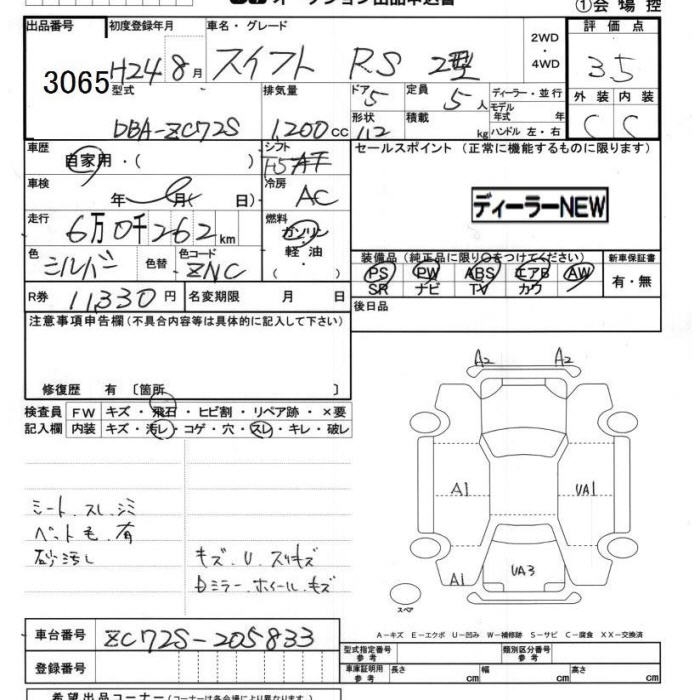 ①会 場 控
出品番号 初度登録年月 車名・グレード 2WD ・ 4WD 評 価 点
3065 H24 8月 スイフト RS 2型 3.5
型式 排気量 ドア 5 定員 5人 ディーラー・並行 外 装 内 装
DBA-ZC72S 1,200cc 形状 112 積載 kg モデル年式 年 ハンドル 左・右 C C
車歴 自家用・( ) シフト F5AT セールスポイント (正常に機能するものに限ります)
車検 年 月( 日) 冷房 AC
ディーラーNEW
走行 6万0千262km 燃料 ガソリン・軽油・( )
色 シルバー 色替 色コード ZNC
装備品 (純正品に限り○をつけてください) 新車保証書
PS PW ABS エアB AW 有・無
SR ナビ TV カワ
R券 11,330円 名変期限 月 日
後日品
注意事項申告欄(不具合内容等は具体的に記入して下さい)
修復歴 有〔箇所 〕
検査員 FW キズ・飛石・ヒビ割・リペア跡・×要
記入欄 内装 キズ・汚レ・コゲ・穴・スレ・キレ・破レ
A2 A2
A1 UA1
A1 UA3
スペア
シート、スレ、シミ
ペット毛、有
砂汚レ
キズ、U、スリキズ
Dミラー、ホイール、キズ
A-キズ E-エクボ U-凹み W-補修跡 S-サビ C-腐食 XX-交換済
車台番号 ZC72S-205833
型式指定番号 参考 類別区分番号 参考
登録番号
車庫証明用 参考 長さ cm 幅 cm 高さ cm
希望出品コーナー(コーナーは各会場により異なります)